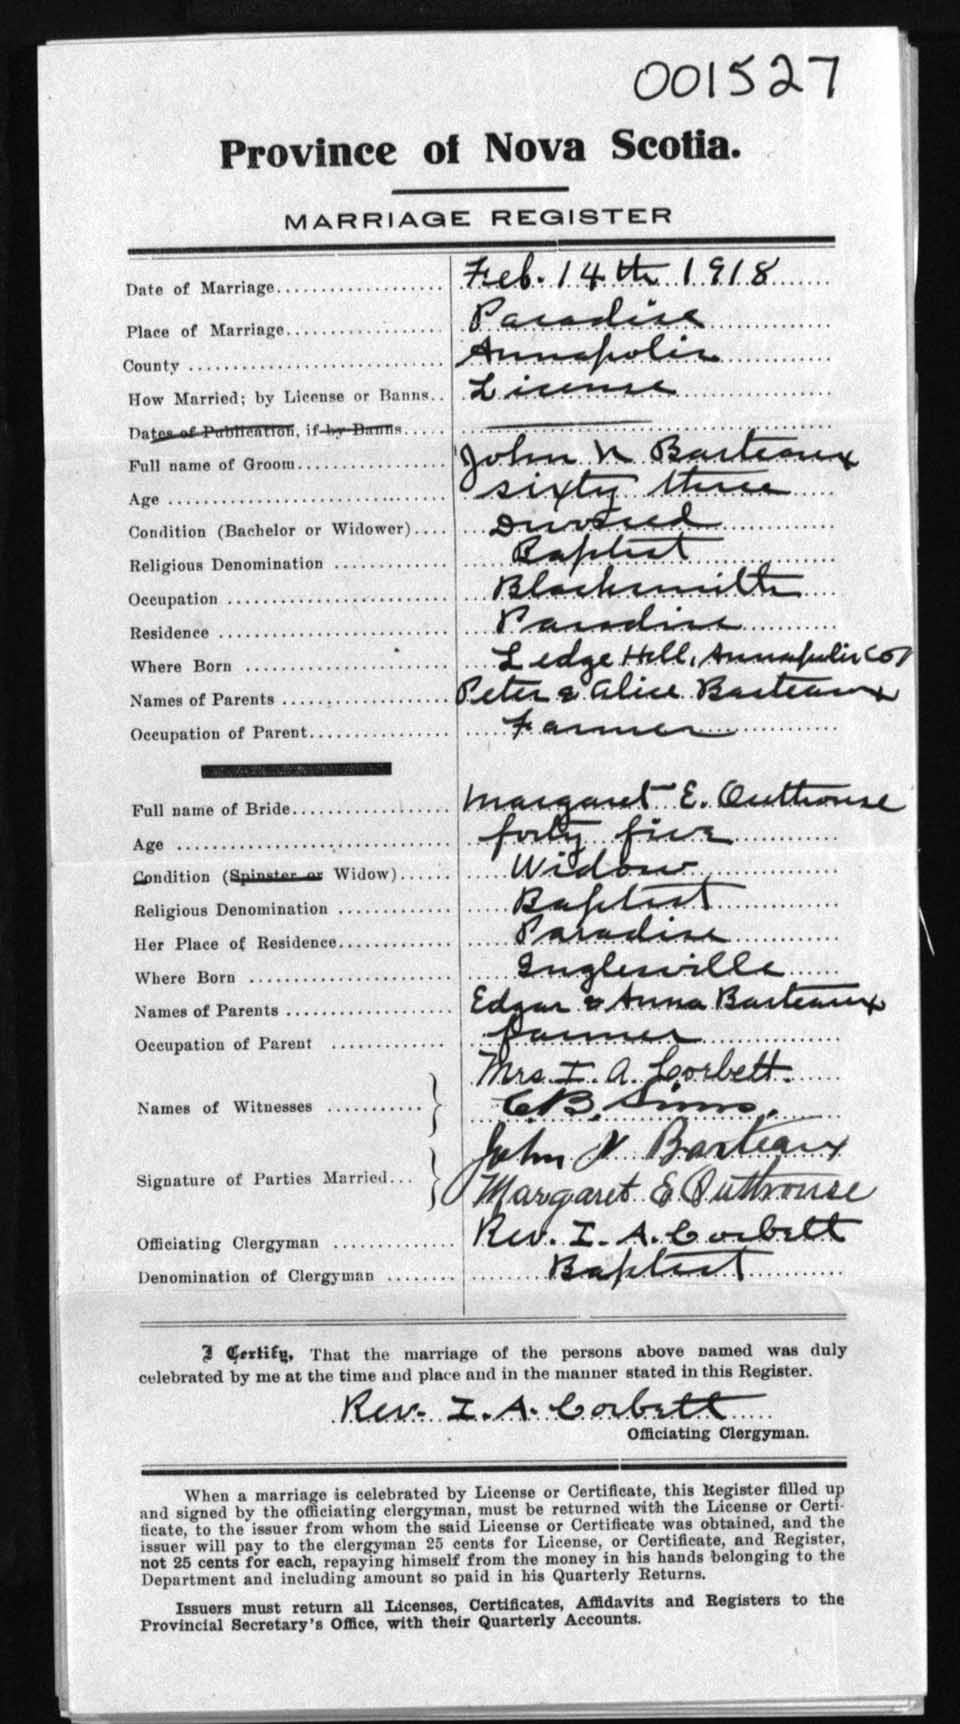 001527
Province of Nova Scotia.
MARRIAGE REGISTER
Date of Marriage.................... Feb. 14th 1918
Place of Marriage.................. Paradise
County ............................ Annapolis
How Married; by License or Banns.. License
Dates of Publication, if by Banns.....
Full name of Groom................. John N Barteaux
Age ............................... sixty three
Condition (Bachelor or Widower).... Divorced
Religious Denomination ............. Baptist
Occupation ......................... Blacksmith
Residence .......................... Paradise
Where Born ........................ Ledge Hill, Annapolis Co
Names of Parents .................. Peter & Alice Barteaux
Occupation of Parent................ Farmer
Full name of Bride.................. Margaret E. Outhouse
Age ................................ forty five
Condition (Spinster or Widow)...... Widow
Religious Denomination ............. Baptist
Her Place of Residence............. Paradise
Where Born ........................ Inglesville
Names of Parents .................. Edgar & Anna Barteaux
Occupation of Parent .............. farmer
Mrs. I. A. Corbett.
Names of Witnesses ........... C.B. Sims.
John N Barteaux
Signature of Parties Married... Margaret E Outhouse
Officiating Clergyman ............. Rev. I. A. Corbett
Denomination of Clergyman ........ Baptist
I Certify, That the marriage of the persons above named was duly
celebrated by me at the time and place and in the manner stated in this Register.
Rev. I. A. Corbett
Officiating Clergyman.
When a marriage is celebrated by License or Certificate, this Register filled up
and signed by the officiating clergyman, must be returned with the License or Certi-
ficate, to the issuer from whom the said License or Certificate was obtained, and the
issuer will pay to the clergyman 25 cents for License, or Certificate, and Register,
not 25 cents for each, repaying himself from the money in his hands belonging to the
Department and including amount so paid in his Quarterly Returns.
Issuers must return all Licenses, Certificates, Affidavits and Registers to the
Provincial Secretary's Office, with their Quarterly Accounts.